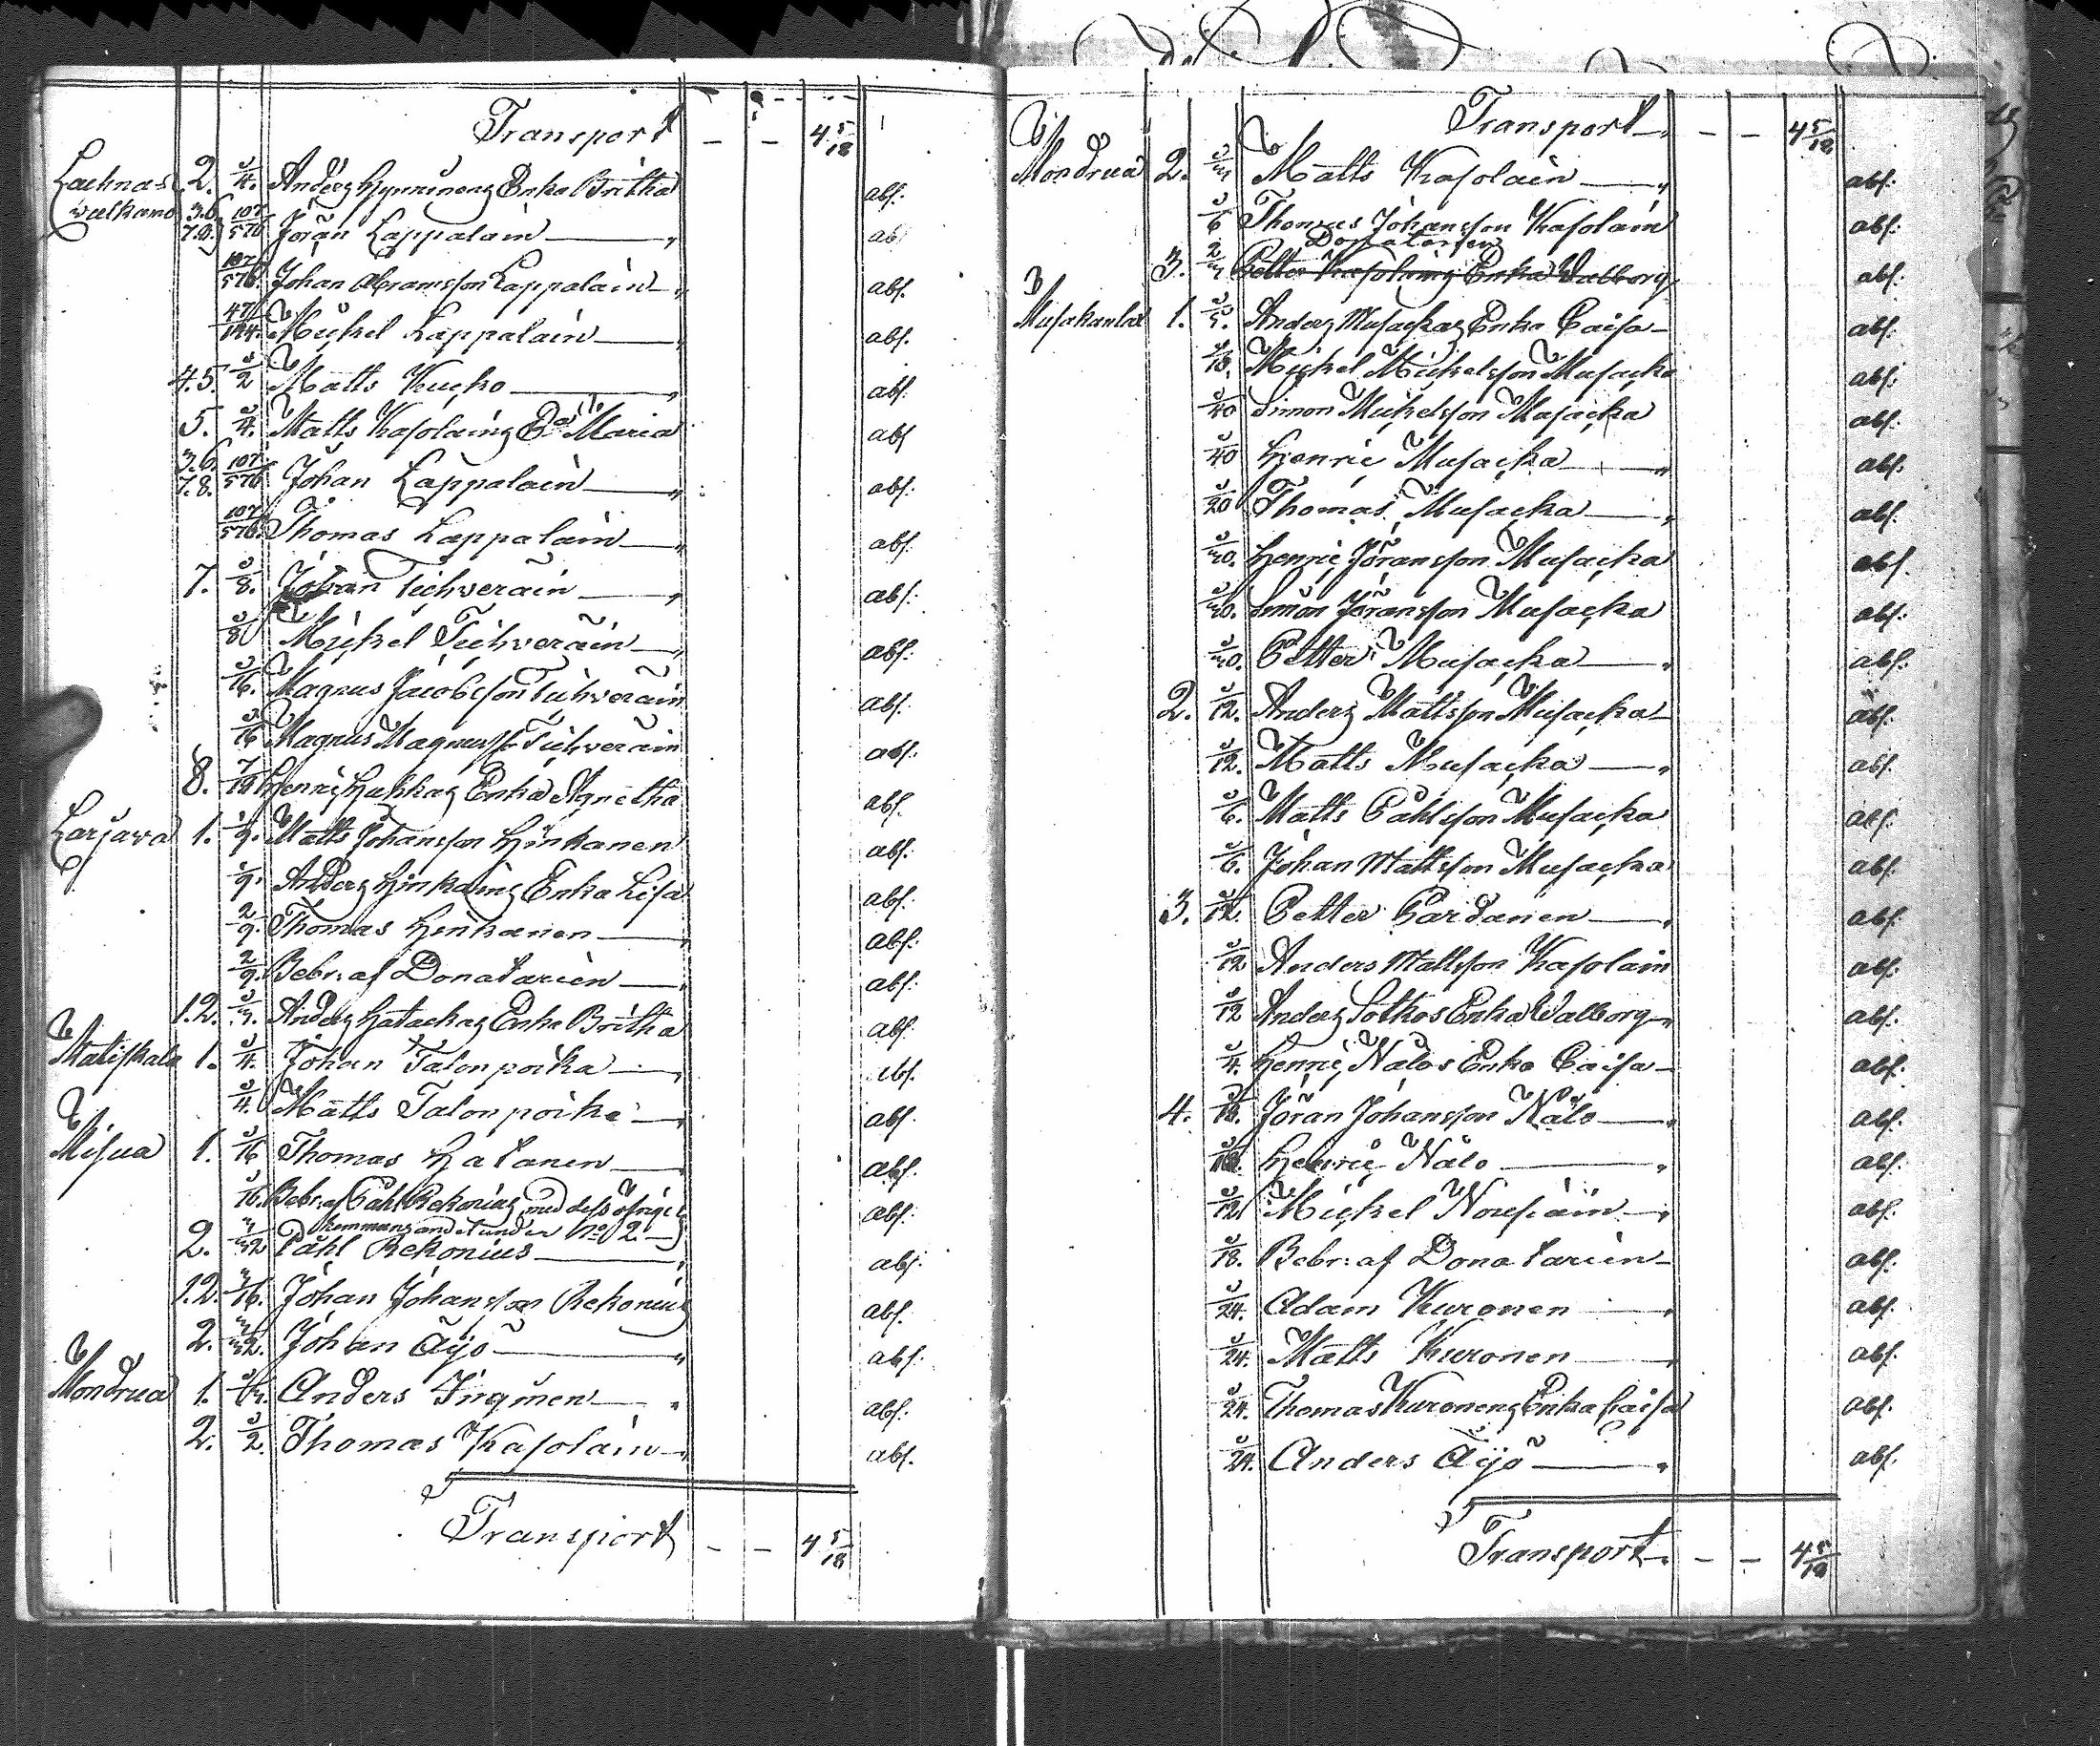 Transport — — 4 5/18
Lachnas 2. 1/4. Anders Hynninens Enka Britha abs:
walkama 3.6. 7.8. 107/576 Jöran Lappalain abs
107/576. Johan Abramsson Lappalain abs.
47/144. Mickel Lappalain abs.
4.5. 1/2 Matts Kucko abs.
5. 1/4. Matts Kasolains Eñ Maria abs
3.6. 7.8. 107/576 Johan Lappalain abs.
107/576. Thomas Lappalain abs.
7. 1/8. Johan Tichverain abs.
1/8 Mickel Tichverain abs.
1/16. Magnus Jacobsson Tichverain abs.
1/16 Magnus Magnusson Tichverain abs.
8. Henric Hukkas Enka Agnetha abs.
Larjava 1. 1/9. Matts Johansson Hinkanen abs.
1/9. Anders Hinkains Enka Lisa abs.
2/9. Thomas Hinkanen abs.
2/9. Bebr: af Donatarien abs.
1.2. 1/3. Anders Hatackas Enka Britha abs.
Matiskala 1. 1/4. Johan Talonpoika abs.
1/4. Matts Talonpoika abs.
Misua 1. 1/16 Thomas Hatanen abs.
1/16. Bebr: af Påhl Rekonius med dess öfrige
hemmans andel under No 2. abs.
2. Påhl Rekonius abs.
1.2. 3/16. Johan Johansson Rekonius abs.
2. Johan Äyjö abs.
Mondrua 1. Anders Inginen abs.
2. 1/2. Thomas Kasolain abs.
Transport — — 4 5/18
Transport — — 4 5/18
Mondrua 2. 1/3 Matts Kasolain abs.
1/6 Thomas Johansson Kasolain abs.
Donatarien
3. 2/3 Petter Kasolains Enka Walborg abs.
Musakanlax 1. 1/5. Anders Musackas Enka Caisa abs.
1/10. Mickel Mickelsson Musacka abs.
1/40 Simon Mickelsson Musacka abs.
1/40 Henric Musacka abs.
1/20 Thomas Musacka abs.
1/30. Henric Jöransson Musacka abs.
1/30. Simon Jöransson Musacka abs.
1/30. Petter Musacka abs.
2. 1/12. Anders Mattsson Musacka abs.
1/12. Matts Musacka abs.
1/6. Matts Påhlsson Musacka abs.
1/6. Johan Mattsson Musacka abs.
3. 1/12. Petter Partanen abs.
1/12 Anders Mattsson Kasolain abs.
1/12 Anders Sotkos Enka Walborg abs.
1/4. Henric Nälos Enka Caisa abs.
4. 1/18. Jöran Johansson Nälo abs.
1/18. Henric Nälo abs.
1/12 Mickel Nousiäin abs.
1/18. Bebr: af Donatarien abs.
1/24. Adam Kuronen abs.
1/24. Matts Kuronen abs.
1/24. Thomas Kuronens Enka Caisa abs.
1/24. Anders Äyjö abs.
Transport — — 4 5/18